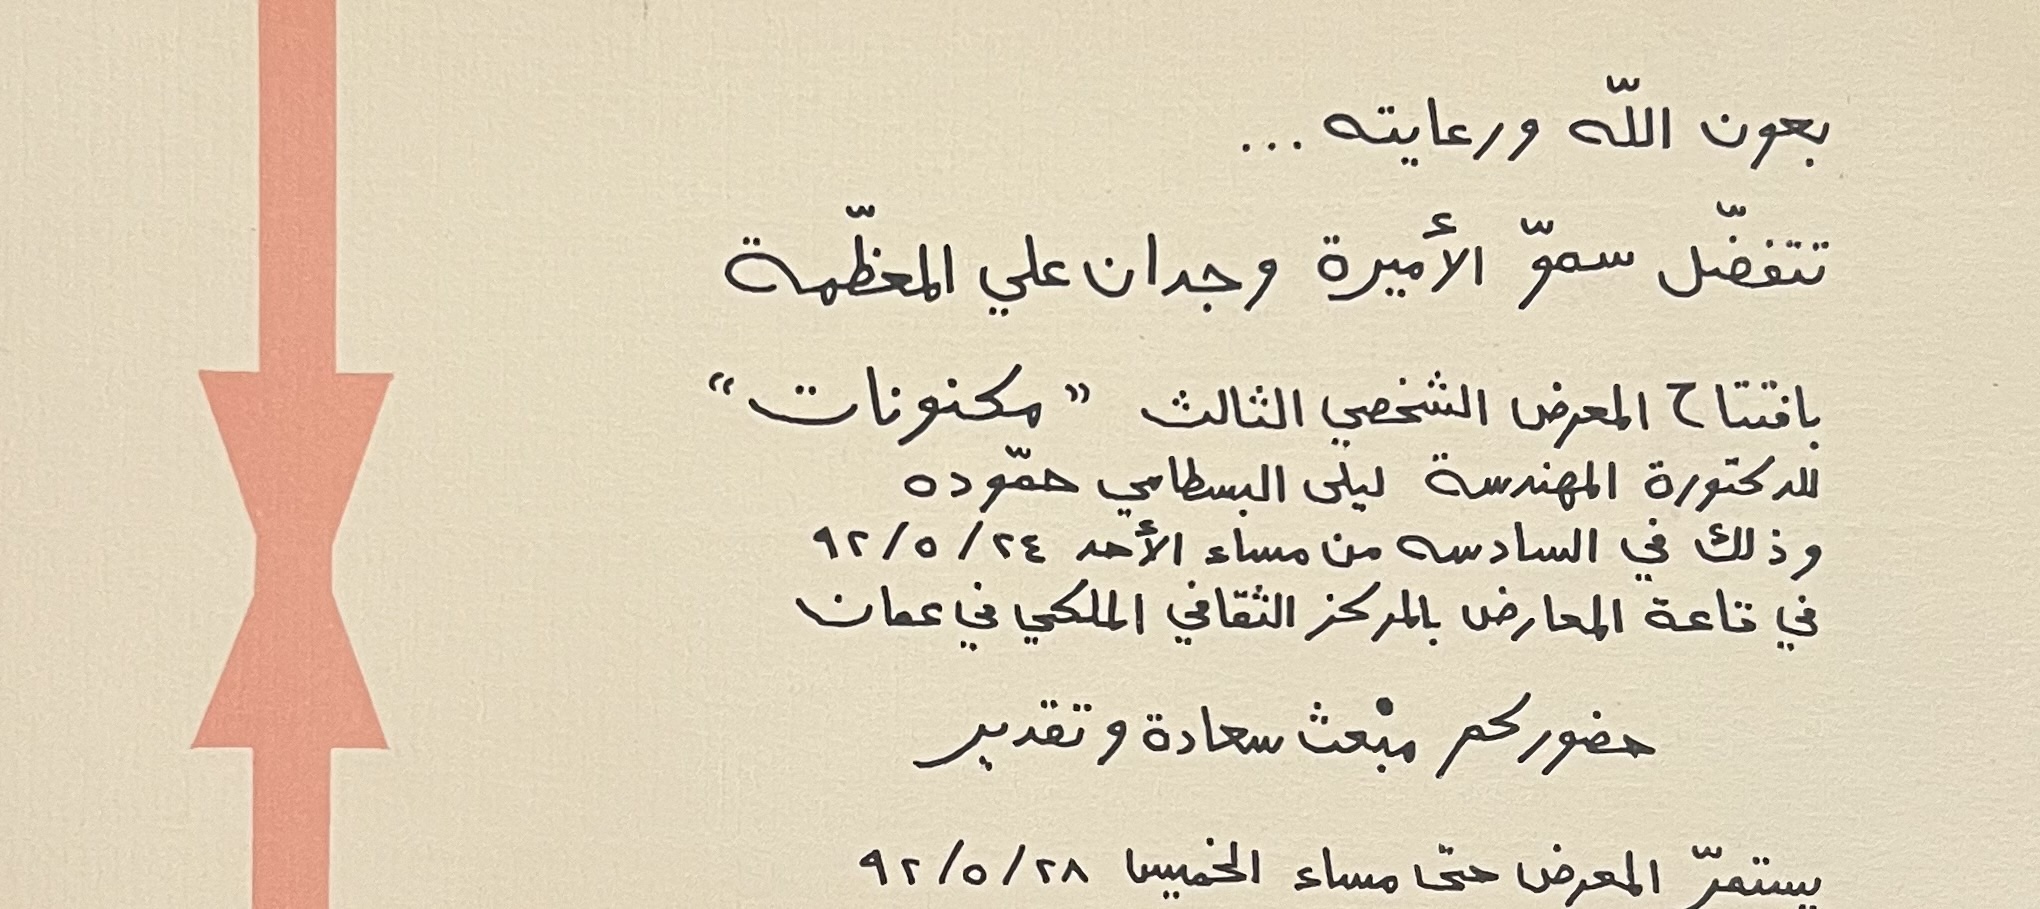 بعون اللّه ورعايته ...
تتفضّل سموّ الأميرة وجدان علي المعظّمة
بافتتاح المعرض الشخصي الثالث "مكنونات"
للدكتورة المهندسة ليلى البسطامي حمّوده
وذلك في السادسه من مساء الأحد ٩٢/٥/٢٤
في قاعة المعارض بالمركز الثقافي الملكي في عمان
حضوركم مبْعث سعادة وتقدير
يستمرّ المعرض حتى مساء الخميس ٩٢/٥/٢٨